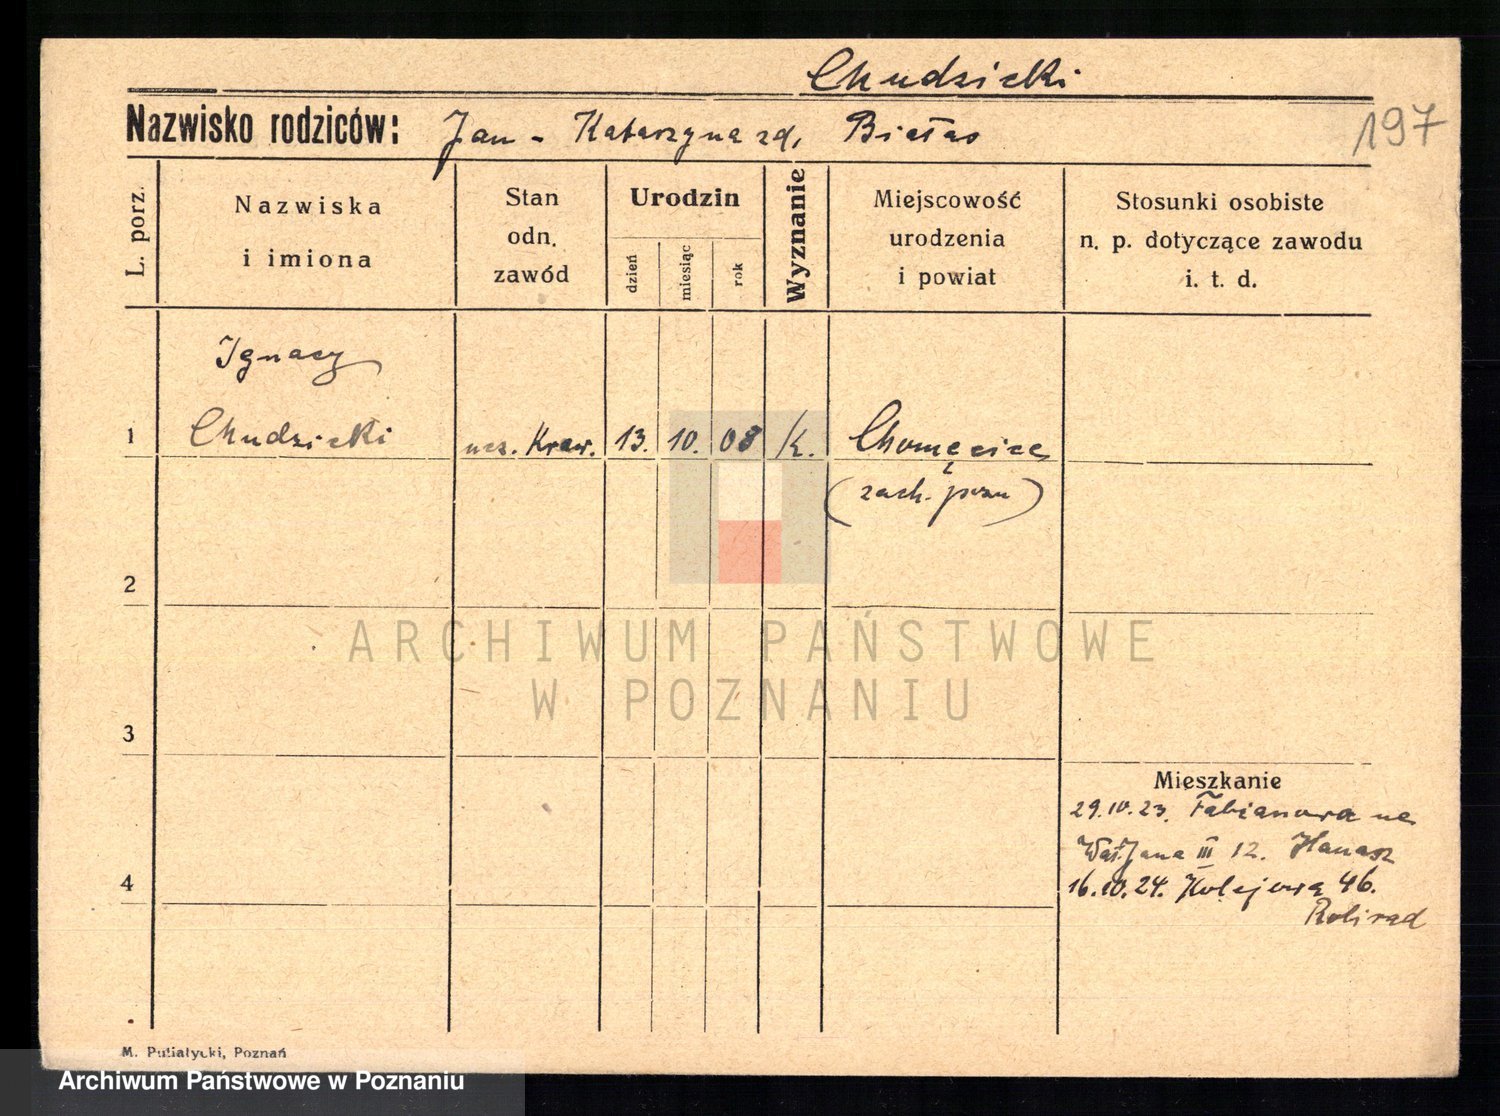 Chudzicki
Nazwisko rodziców: Jan - Katarzyna zd. Białas
197
L. porz.
Nazwiska
i imiona
Stan
odn.
zawód
Urodzin
dzień
miesiąc
rok
Wyznanie
Miejscowość
urodzenia
i powiat
Stosunki osobiste
n. p. dotyczące zawodu
i. t. d.
Ignacy
1 Chudzicki ucz. Kraw. 13. 10. 08 k. Chomęcice
(zach. pozn)
2
ARCHIWUM PAŃSTWOWE
W POZNANIU
3
Mieszkanie
29.10.23. Fabianowa
Jana III 12. Hanasz
4
16.10.24. Kolejowa 46.
M. Putiatycki, Poznań
Archiwum Państwowe w Poznaniu